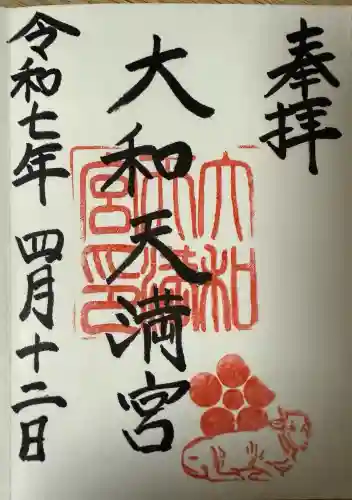 奉拝
大和天満宮
大和天満宮印
令和七年 四月十二日